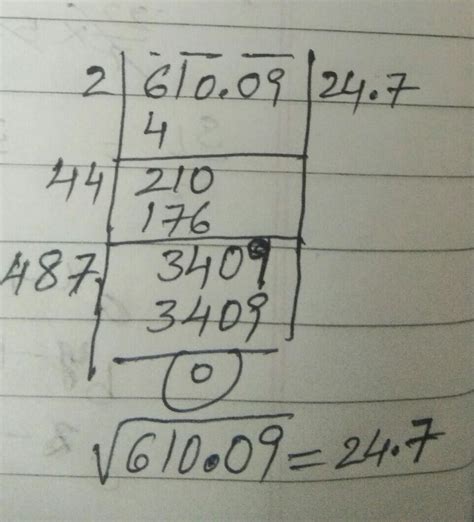 2 610.09 24.7
4
44 210
176
487 3409
3409
0
√610.09 = 24.7